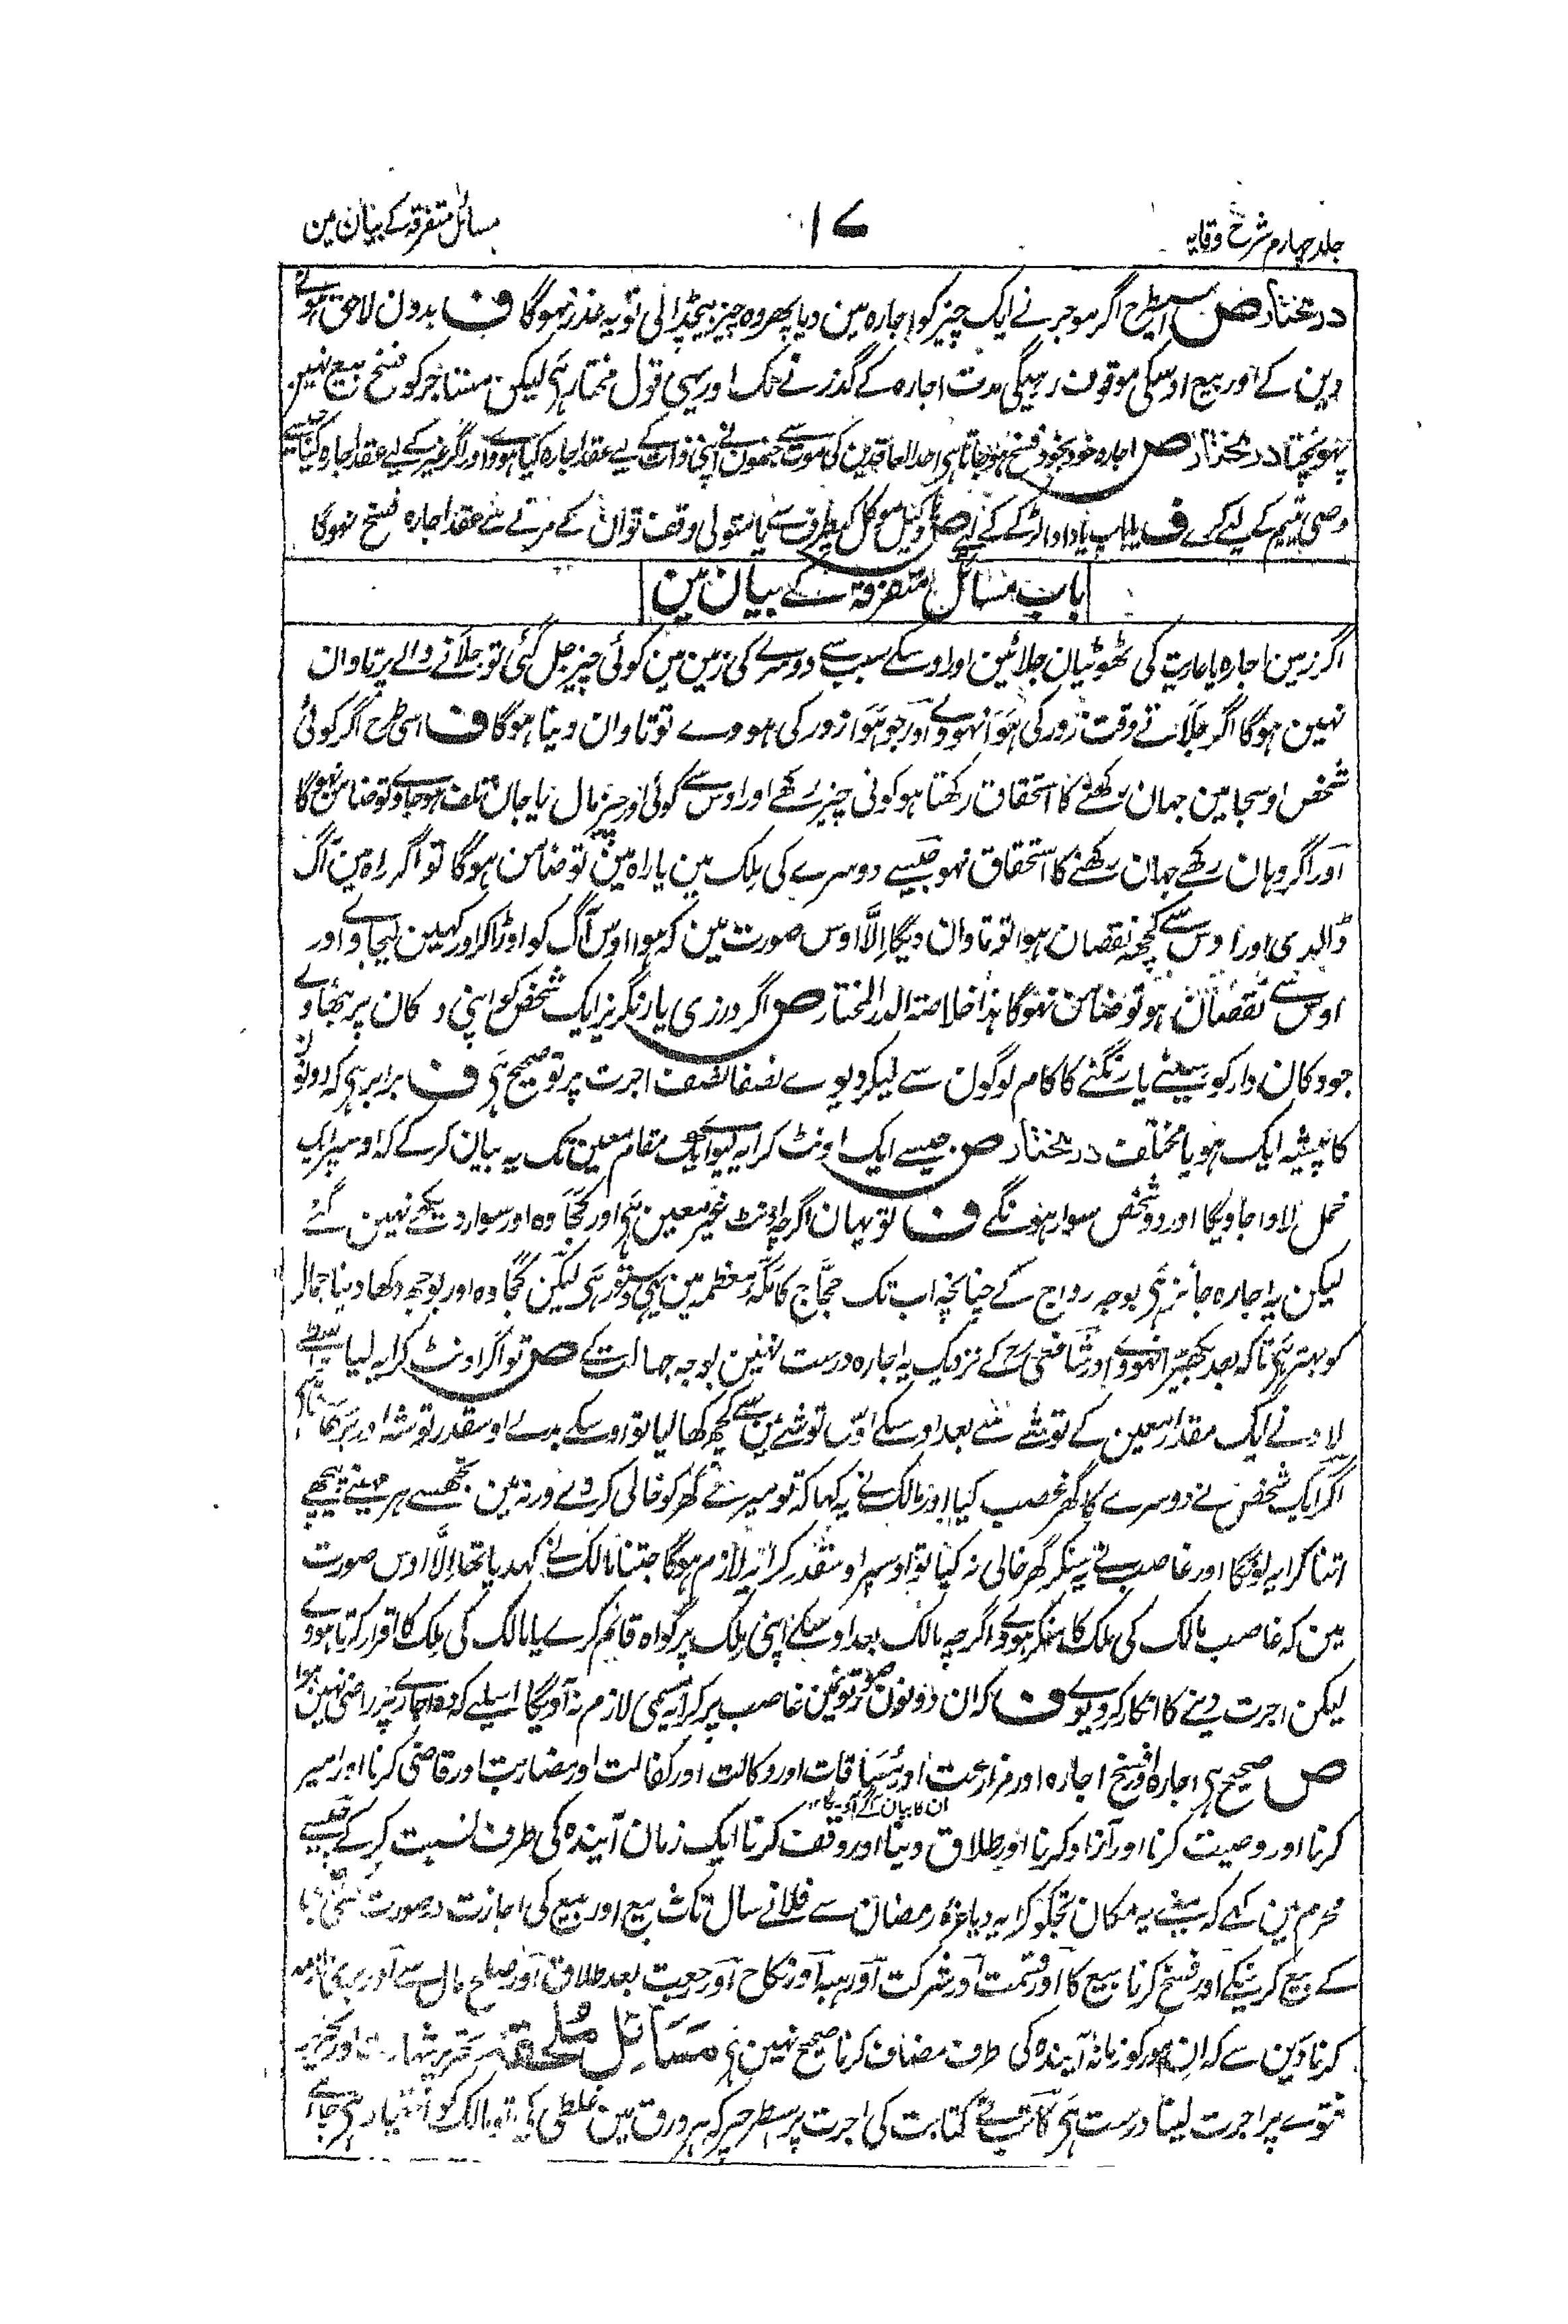 جلد چہارم شرح وقایہ
۱۷
مسائل متفرقہ کے بیان مین
درمختار ص اسیطرح اگر موجر نے ایک چیز کو اجارہ مین دیا پھر وہ چیز بیچڈالی تو یہ عذر نہوگا ف بدون لاحق ہونے
دین کے اور بیع اوسکی موقوف رہیگی مدت اجارہ کے گذرنے تک اور یہی قول مختار ہی لیکن مستاجر کو فسخ بیع نہین
پہونچتا درمختار ص اجارہ خود بخود فسخ ہوجاتا ہی احد العاقدین کی موت سے جنھون نے اپنی ذات کے لیے عقد اجارہ کیا ہووے اور اگر غیر کے لیے عقد اجارہ کیا جیسے
وصی یتیم کے لیے کرے ف یا باپ یا دادا لڑکے کے لیے ص یا وکیل موکل کیطرف سے یا متولی وقف تو ان کے مرنے سے عقد اجارہ فسخ نہوگا
باب مسائل متفرقہ کے بیان مین
اگر زمین اجارہ یا عاریت کی ٹھونٹیان جلائین اور اوسکے سبب سے دوسرے کی زمین مین کوئی چیز جل گئی تو جلانے والے پر تاوان
نہین ہوگا اگر جلاتے وقت زور کی ہوا نہووے اور جو ہوا زور کی ہووے تو تاوان دینا ہوگا ف اسی طرح اگر کوئی
شخص اوسجا مین جہان رکھنے کا استحقاق رکھتا ہو کوئی چیز رکھے اور اوس سے کوئی اور چیز مال یا جان تلف ہوجاوے تو ضامن نہوگا
اور اگر وہان رکھے جہان رکھنے کا استحقاق نہو جیسے دوسرے کی ملک مین یا راہ مین تو ضامن ہوگا تو اگر راہ مین آگ
ڈالدی اور اوس سے کچھ نقصان ہوا تو تاوان دیگا اِلّا اوس صورت مین کہ ہوا اوس آگ کو اوڑا کر اور کہین لیجاوے اور
اوس سے نقصان ہو تو ضامن نہوگا ہذا خلاصۃ الدر المختار ص اگر درزی یا رنگریز ایک شخص کو اپنی دکان پر بٹھاوے
جو دکان دار کو سینے یا رنگنے کا کام لوگون سے لیکر دیوے نصفا نصف اجرت پر تو صحیح ہی ف برابر ہی کہ دونون
کا پیشہ ایک ہو یا مختلف درمختار ص جیسے ایک اونٹ کرایہ لیوے ایک مقام معین تک یہ بیان کرکے کہ اوسپر ایک
محمل لادا جاویگا اور دو شخص سوار ہونگے ف تو یہان اگرچہ اونٹ غیر معین ہی اور کجاوہ اور سوار دیکھے نہین گئے
لیکن یہ اجارہ جائز ہی بوجہ رواج کے چنانچہ اب تک حجّاج کا مکّہ معظمہ مین یہی دستور ہی لیکن کجاوہ اور بوجھ دکھا دینا جمال
کو بہتر ہی تاکہ بعد بکھیڑا نہووے اور شافعی رح کے نزدیک یہ اجارہ درست نہین بوجہ جہالت کے ص تو اگر اونٹ کرایہ لیا واسطے
لادنے ایک مقدار معین کے توشے سے بعد اوسکے اوس توشے مین سے کچھ کھا لیا تو اوسکے بدلے اوسقدر توشہ اور بڑھا
اگر ایک شخص نے دوسرے کا گھر غصب کیا اور مالک نے یہ کہا کہ تو میرے گھر کو خالی کر دے ورنہ مین تجھسے ہر مہینے پیچھے
اتنا کرایہ لونگا اور غاصب نے یہ سنکر گھر خالی نہ کیا تو اوسپر اوسقدر کرایہ لازم ہوگا جتنا مالک نے کہدیا تھا اِلّا اوس صورت
مین کہ غاصب مالک کی ملک کا منکر ہووے اگرچہ مالک بعد اوسکے اپنی ملک پر گواہ قائم کرے یا مالک کی ملک کا اقرار کرتا ہووے
لیکن اجرت دینے کا انکار کر دیوے ف کہ ان دونون صورتونمین غاصب پر کرایہ مسمی لازم نہ آویگا اسلیے کہ وہ اجارے پر راضی نہین ہوا
ص صحیح ہی اجارہ اور فسخ اجارہ اور مزارعت اور مساقات اور وکالت اور کفالت اور مضاربت اور قاضی کرنا اور امیر
ان کا بیان آگے آویگا
کرنا اور وصیت کرنا اور آزاد کرنا اور طلاق دینا اور وقف کرنا ایک زمان آیندہ کی طرف نسبت کرکے جیسے
محرم مین کہے کہ مینے یہ مکان تجکو کرایہ دیا غرہ رمضان سے فلانے سال تک بیع اور بیع کی اجازت درصورت
کے بیع کرینکے اور فسخ کرنا بیع کا اور قسمت اور شرکت اور ہبہ اور نکاح اور رجعیت بعد طلاق اور صلح مال سے اور بری الذمہ
کرنا دین سے کہ ان امور کو زمانہ آیندہ کی طرف مضاف کرنا صحیح نہین ہی مسائل ملحقہ تحریر شہادت اور تحریر
فتوے پر اجرت لینا درست ہی کاتب نے کتابت کی اجرت پر اسطرحپر کہ ہر ورق مین غلطی کی تو مالک کو اختیار ہی چاہے